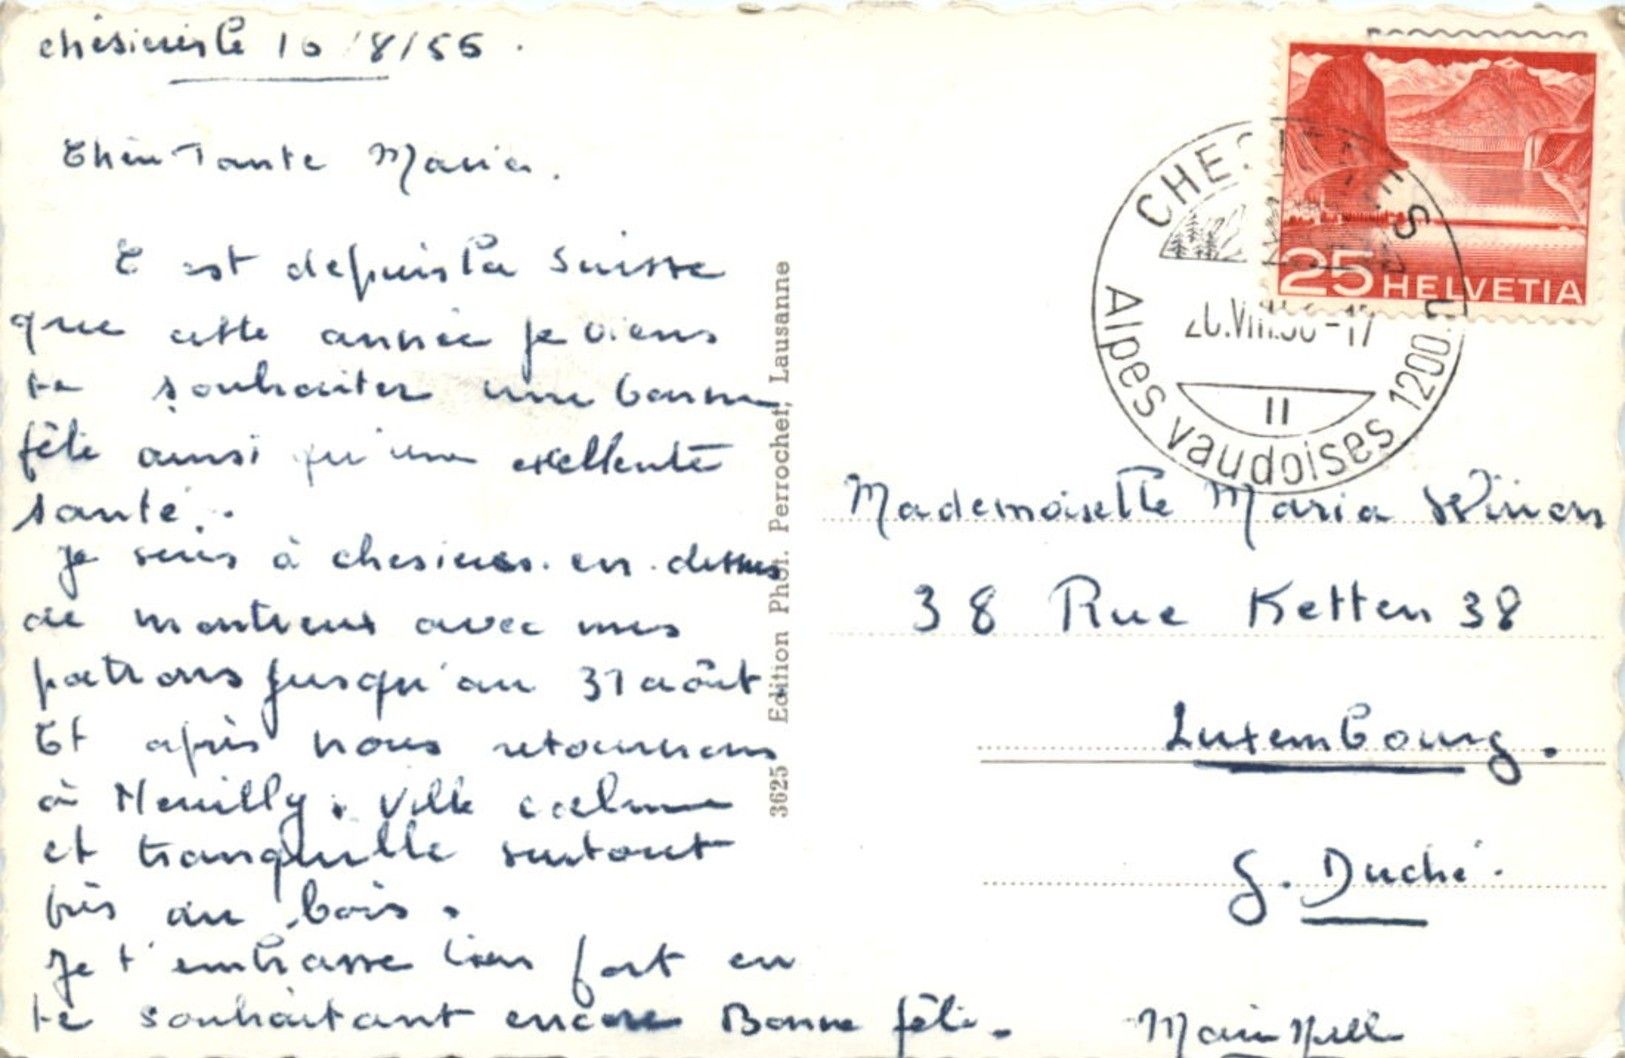 chésières le 16/8/56.
Chère Tante Maria.
C est depuis la Suisse
que cette année je viens
te souhaiter une bonne
fête ainsi qu'une exellente
santé.
Je suis à chesieres. en. dessus
de montreux avec mes
patrons jusqu'au 31 août.
Et après nous retournons
à Neuilly. Ville calme
et tranquille surtout
près au bois.
Je t'embrasse bien fort en
te souhaitant encore Bonne fête.
3625 Edition Phot. Perrochet, Lausanne
25 HELVETIA
CHESIERES
-17
II
Alpes vaudoises 1200 m
Mademoiselle Maria
38 Rue Ketten 38
Luxembourg.
G. Duché.